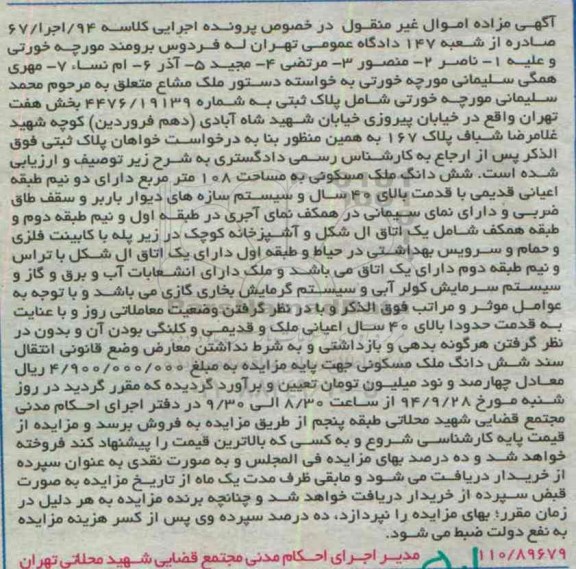 آگهی مزاده اموال غیر منقول در خصوص پرونده اجرایی کلاسه ۹۴/اجرا/۶۷
صادره از شعبه ۱۴۷ دادگاه عمومی تهران له فردوس برومند مورچه خورتی
و علیه ۱- ناصر ۲- منصور ۳- مرتضی ۴- مجید ۵- آذر ۶- ام نساء ۷- مهری
همگی سلیمانی مورچه خورتی به خواسته دستور ملک مشاع متعلق به مرحوم محمد
سلیمانی مورچه خورتی شامل پلاک ثبتی به شماره ۴۴۷۶/۱۹۱۳۹ بخش هفت
تهران واقع در خیابان پیروزی خیابان شهید شاه آبادی (دهم فروردین) کوچه شهید
غلامرضا شباف پلاک ۱۶۷ به همین منظور بنا به درخواست خواهان پلاک ثبتی فوق
الذکر پس از ارجاع به کارشناس رسمی دادگستری به شرح زیر توصیف و ارزیابی
شده است. شش دانگ ملک مسکونی به مساحت ۱۰۸ متر مربع دارای دو نیم طبقه
اعیانی قدیمی با قدمت بالای ۴۰ سال و سیستم سازه های دیوار باربر و سقف طاق
ضربی و دارای نمای سیمانی در همکف نمای آجری در طبقه اول و نیم طبقه دوم و
طبقه همکف شامل یک اتاق ال شکل و آشپزخانه کوچک در زیر پله با کابینت فلزی
و حمام و سرویس بهداشتی در حیاط و طبقه اول دارای یک اتاق ال شکل با تراس
و نیم طبقه دوم دارای یک اتاق می باشد و ملک دارای انشعابات آب و برق و گاز و
سیستم سرمایش کولر آبی و سیستم گرمایش بخاری گازی می باشد و با توجه به
عوامل موثر و مراتب فوق الذکر و با در نظر گرفتن وضعیت معاملاتی روز و با عنایت
به قدمت حدودا بالای ۴۰ سال اعیانی ملک و قدیمی و کلنگی بودن آن و بدون در
نظر گرفتن هرگونه بدهی و بازداشتی و به شرط نداشتن معارض وضع قانونی انتقال
سند شش دانگ ملک مسکونی جهت پایه مزایده به مبلغ ۴/۹۰۰/۰۰۰/۰۰۰ ریال
معادل چهارصد و نود میلیون تومان تعیین و برآورد گردیده که مقرر گردید در روز
شنبه مورخ ۹۴/۹/۲۸ از ساعت ۸/۳۰ الی ۹/۳۰ در دفتر اجرای احکام مدنی
مجتمع قضایی شهید محلاتی طبقه پنجم از طریق مزایده به فروش برسد و مزایده از
قیمت پایه کارشناسی شروع و به کسی که بالاترین قیمت را پیشنهاد کند فروخته
خواهد شد و ده درصد بهای مزایده فی المجلس و به صورت نقدی به عنوان سپرده
از خریدار دریافت می شود و مابقی ظرف مدت یک ماه از تاریخ مزایده به صورت
قبض سپرده از خریدار دریافت خواهد شد و چنانچه برنده مزایده به هر دلیل در
زمان مقرر؛ بهای مزایده را نپردازد، ده درصد سپرده وی پس از کسر هزینه مزایده
به نفع دولت ضبط می شود.
۱۱۰/۸۹۶۷۹ مدیر اجرای احکام مدنی مجتمع قضایی شهید محلاتی تهران